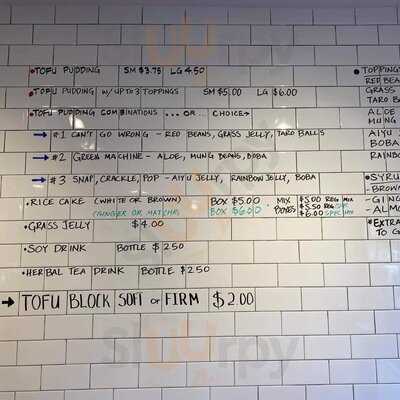 • TOFU PUDDING SM $3.75 LG 4.50
• TOFU PUDDING W/ UP TO 3 TOPPINGS SM $5.00 LG $6.00
• TOFU PUDDING COMBINATIONS ... OR ... CHOICE→
→ #1 CAN'T GO WRONG - RED BEANS, GRASS JELLY, TARO BALLS
→ #2 GREEN MACHINE - ALOE, MUNG BEANS, BOBA
→ #3 SNAP, CRACKLE, POP - AIYU JELLY, RAINBOW JELLY, BOBA
• RICE CAKE (WHITE OR BROWN) BOX $5.00 • MIX BOXES $5.00 REG MIX
(GINGER OR MATCHA) BOX $6.00 $5.50 REG
$6.00 SPEC MIX
• GRASS JELLY $4.00
• SOY DRINK BOTTLE $2.50
• HERBAL TEA DRINK BOTTLE $2.50
→ TOFU BLOCK SOFT OR FIRM $2.00
• TOPPINGS
RED BEA
GRASS
TARO B
ALOE
MUNG
AIYU
BOBA
RAINB
• SYRU
- BROWN
- GING
- ALMO
• EXTRA
TO G
Sluurpy